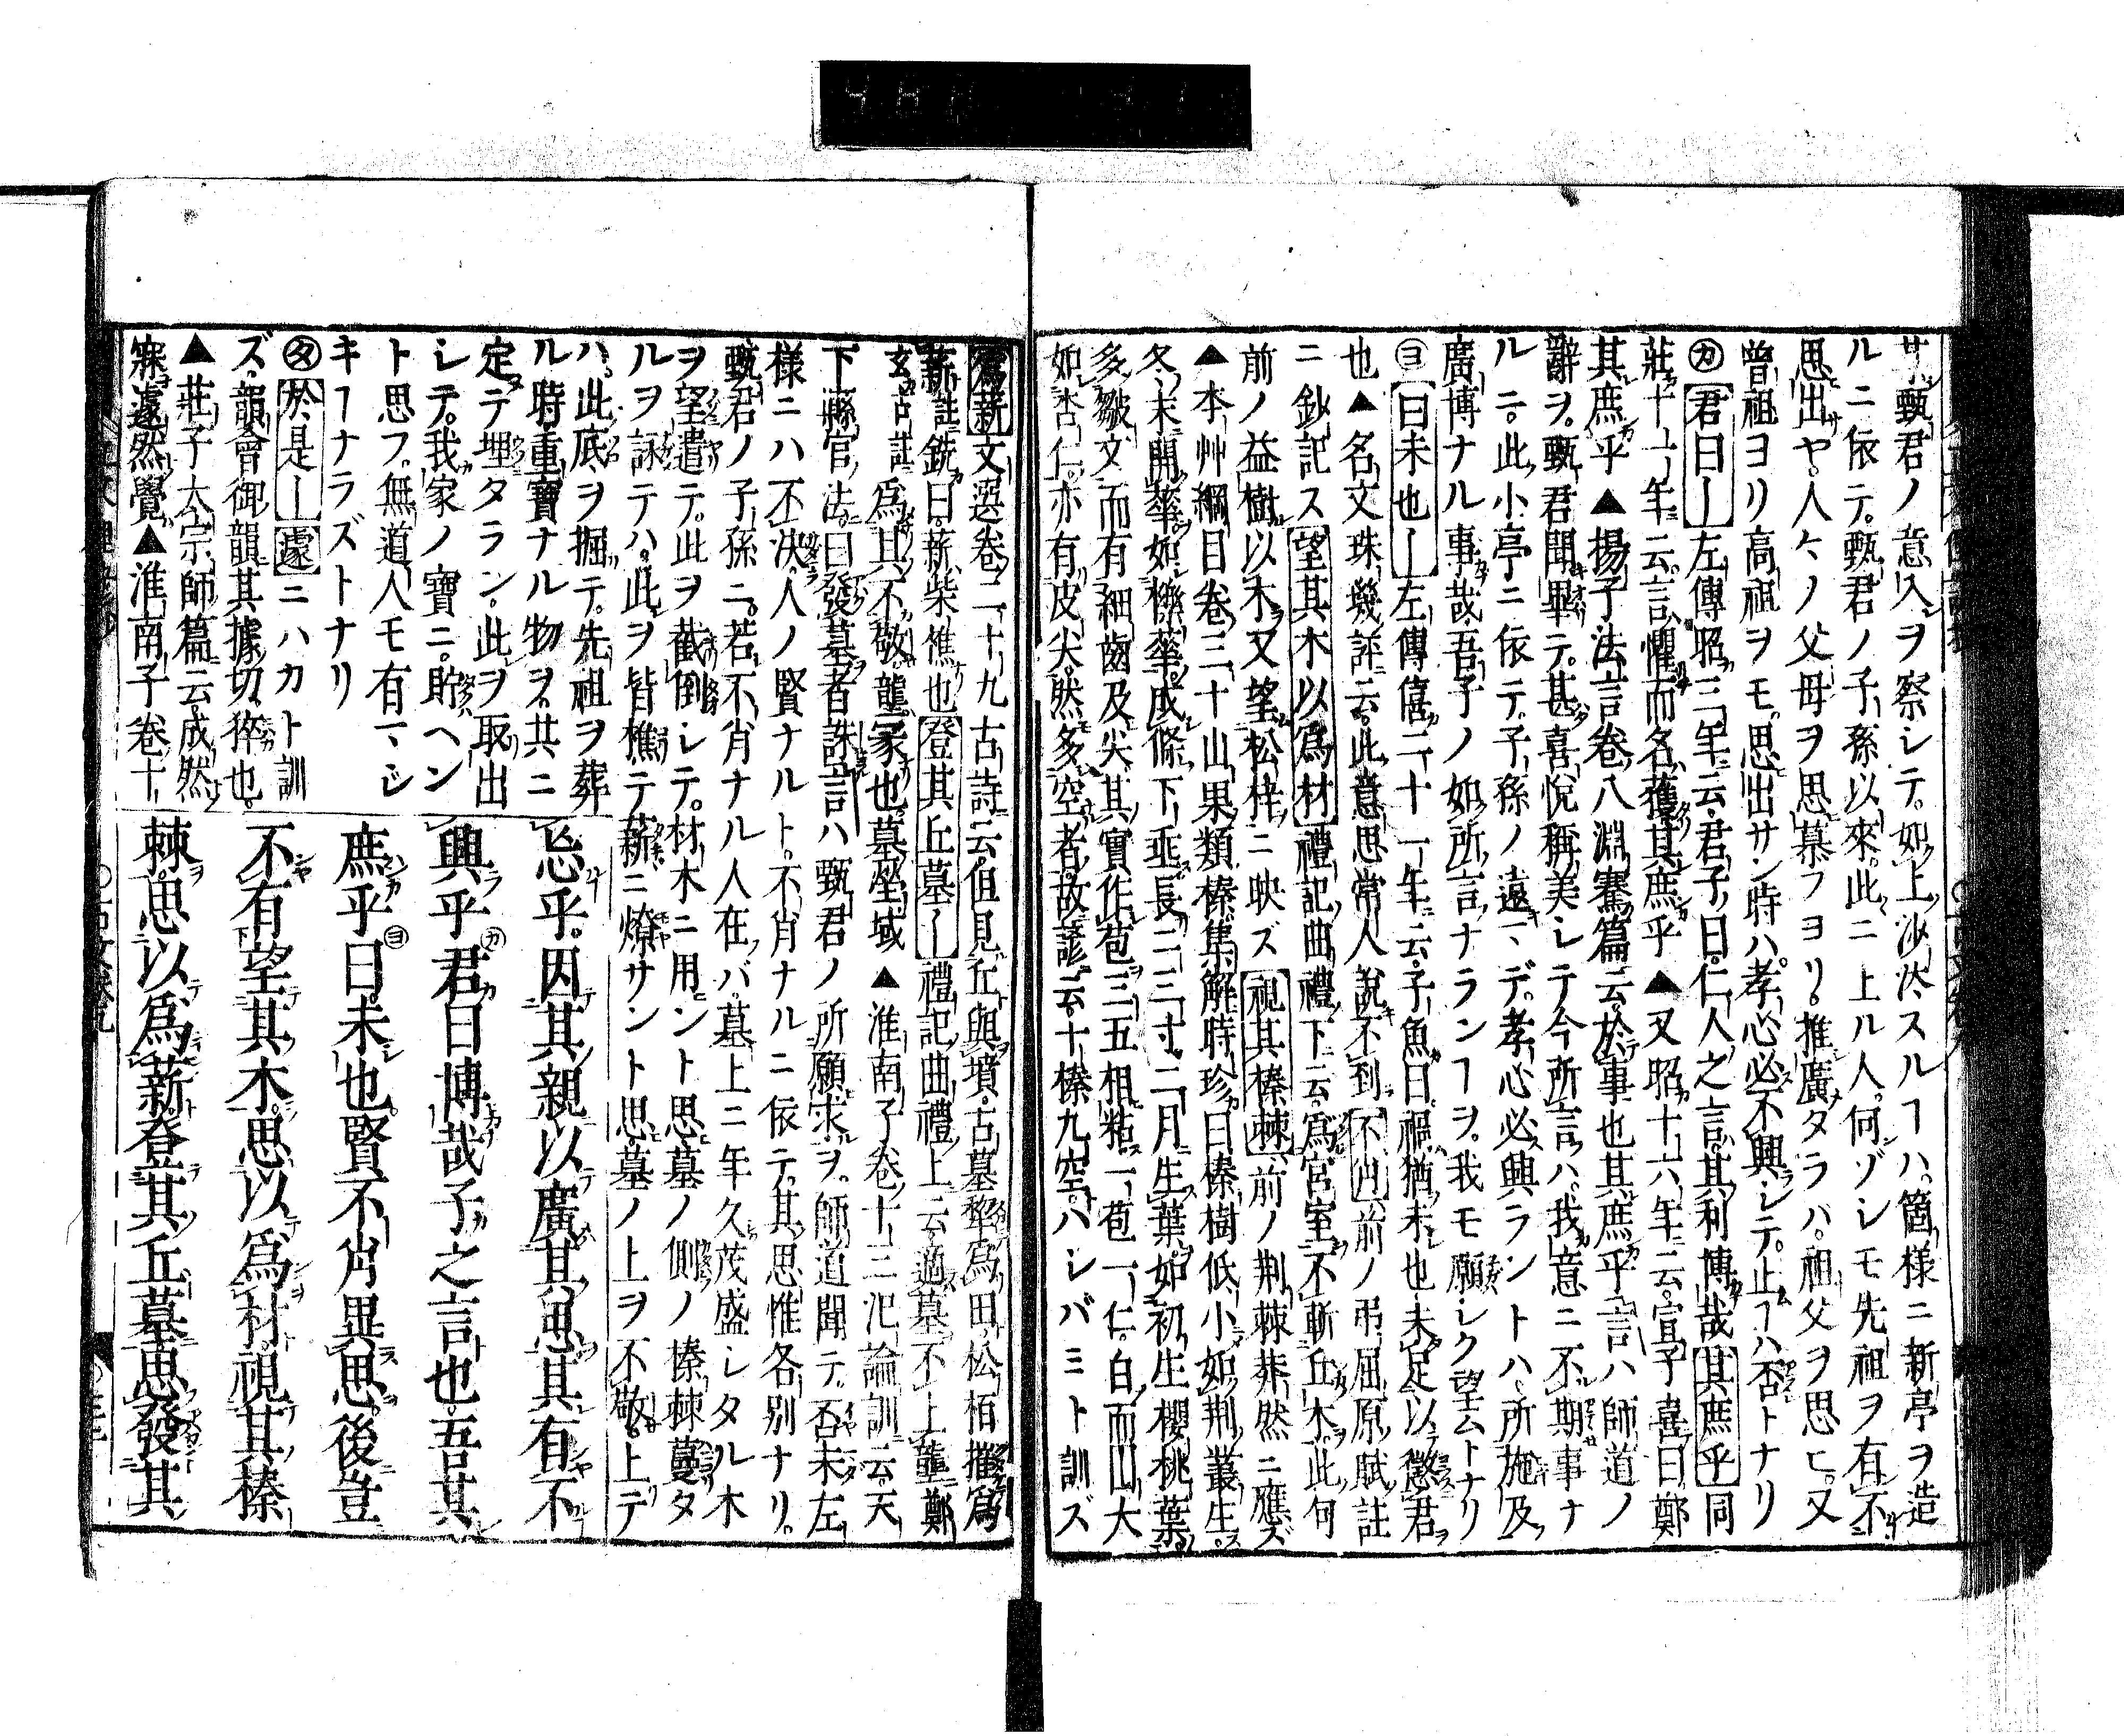 甄君ノ意入ヲ察シテ。如上沙汰スルヿハ。箇様ニ新亭ヲ造
ルニ依テ。甄君ノ子孫以來。此ニ上ル人。何ゾシモ先祖ヲ有不
思出ヤ。人々ノ父母ヲ思慕フヨリ。推廣タラハ。祖父ヲ思ヒ。又
曽祖ヨリ高祖ヲモ思出サン時ハ。孝心必不興シテ。止ヿハ否トナリ
㋕君曰ー左傳昭三年云。君子曰。仁人之言。其利博哉其庶乎同
莊十一年云。言懼而名。其庶乎▲又昭十六年云。宣子喜曰鄭
其庶乎▲揚子法言卷八淵騫篇云。於事也其庶乎言ハ師道ノ
辭ヲ。甄君聞畢テ。甚喜悅稱美シテ今所言ハ。我意ニ不期事ナ
ルニ。此小亭ニ依テ。子孫ノ遠マデ。孝心必興ラントハ所施及
廣博ナル事哉。吾子ノ如所言ナランヿヲ。我モ願シク望ムトナリ
㋵曰未也ー左傳僖二十一年云。子魚曰。禍猶未也未足以懲君
也▲名文珠璣評云。此意思常人說不到不凶前ノ弔屈原賦註
ニ鈔記ス望其木以爲材禮記曲禮下云。爲宮室不斬丘木。此何
前ノ益樹以木又望松梓ニ映ズ視其榛棘前ノ荆棘莽然ニ應ズ
▲本艸綱目卷三十山果類榛集解時珍曰榛樹低小如荆叢生。
冬末開華如櫟華。成條下垂長二三寸。二月生葉如初生櫻桃葉
多皺文而有細齒及尖。其實作苞三五相粘一苞一仁。白而山大
如杏仁。亦有皮尖。然多空者。故諺云。十榛九空。ハシバミト訓ズ
爲薪文選卷二十九古詩云。但見丘與墳。古墓犂爲田。松栢摧爲
薪註銑曰。薪柴樵也登其丘墓ー禮記曲禮上云。適墓不上壟鄭
玄註爲其不敬。壟冢也。墓塋域▲淮南子卷十三氾論訓云。天
下縣官法。曰發墓者誅言ハ甄君ノ所願求ヲ。師道聞テ。否未左
様ニハ不決。人ノ賢ナルト。不肖ナルニ依テ。其思惟各別ナリ。
甄君ノ子孫ニ。若不肖ナル人在バ。墓上ニ年久茂盛シタル木
ヲ望遣テ。此ヲ截倒シテ。材木ニ用ント思。墓ノ側ノ榛棘蔓タ
ルヲ詠テハ。此ヲ皆樵テ薪ニ燎サント思。墓ノ上ヲ不敬。上デ
ハ。此底ヲ掘テ。先祖ヲ葬
ル時重寶ナル物ヲ。其ニ
定テ埋タラン。此ヲ取出
シテ。我家ノ寶ニ。貯ヘン
ト思フ。無道人モ有マジ
キヿナラズトナリ
㋟於是ー遽ニハカト訓
ズ。韻會御韻其據切。猝也。
▲莊子大宗師篇云。成然
寐遽然覺▲淮南子卷十
忘乎。因其親以廣其思其有不
興乎㋕君曰博哉子之言也。吾其
庶乎㋵曰。未也賢不肖異思。後豈
不有望其木。思以爲材。視其榛
棘。思以爲薪登其丘墓思發其